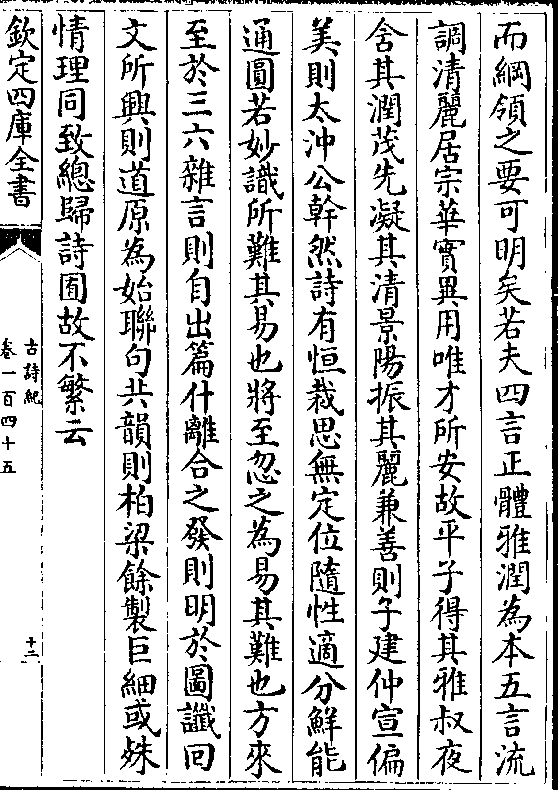 而綱領之要可明矣若夫四言正體雅潤為本五言流
調清麗居宗華實異用唯才所安故平子得其雅叔夜
含其潤茂先凝其清景陽振其麗兼善則子建仲宣偏
美則太沖公幹然詩有恒裁思無定位隨性適分鮮能
通圓若妙識所難其易也將至忽之為易其難也方來
至於三六雜言則自出篇什離合之發則明於圖讖回
文所興則道原為始聯句共韻則柏梁餘製巨細或殊
情理同致總歸詩囿故不繁云
欽定四庫全書
古詩紀
卷一百四十五
十二